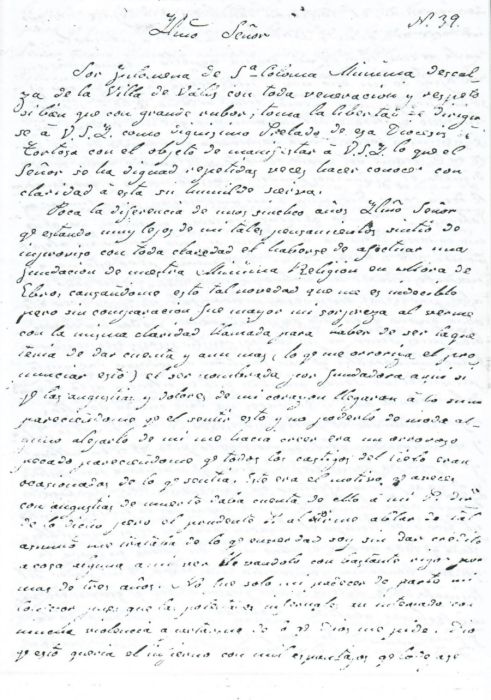 N. 39.
Ylmo Señor
Sor Filomena de Sta Coloma Minima descal-
za de la Villa de Valls con toda veneracion y respeto
si bien que con grande rubor; toma la libertad de dirigir
se á V.S.Y. como dignisimo Prelado de esa Diocesis de
Tortosa con el objeto de manifestar á V.S.Y. lo que el
Señor se ha dignad repetidas veces hacer conocer con
claridad á esta su humilde sierva.
Poca la diferencia de unos sinco años Ylmo Señor
qe estando muy lejos de mi tales pensamientos sintió de
improviso con toda claredad el haberse de afectuar una
fundacion de nuestra Minima Religion en Mora de
Ebro, causandome esto tal novedad que me es indecible
pero sin comparacion fue mayor mi sorpresa al verme
con la misma claridad llamada para haber de ser la que
tenia de dar cuenta y aun mas, (lo qe me orroriza el pro
nunciar esto) el ser nombrada por fundadora aqui si
qe las angustias y dolores de mi corazon llegaron á lo sumo
pareciendome qe el sentir esto y no poderlo de modo al-
guno alejarlo de mi me hacia creer era un orroroso
pecado pareciendome qe todos los castigos del cielo eran
ocasionados de lo qe sentia. Este era el motivo, qe aveces
con angustias de muerte daba cuenta de ello á mi P. dirr
de lo dicho pero el prudente P. al oirme ablar de tal
asunto me trataba de lo qe enverdad soy sin dar credito
a cosa alguna a mi ver llevandolo con bastante rigor por
mas de tres años. No fue solo mi padecer de parte mi
confesor pues que la potestad infernal an intentado con
mucha violencia a
de qe Dios me pide. Digo
qe esto queria el infierno con mil espantajos qe